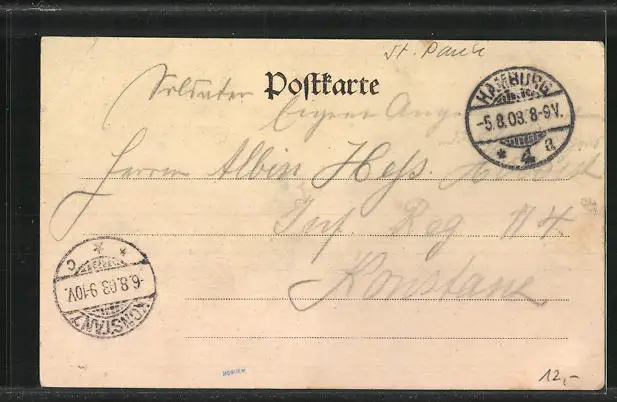 St. Pauli
Postkarte
Soldaten
Eigene Ang
HAMBURG
-5.8.03.8-9V.
* 4 a
Herrn Albin Hess
Inf Reg 114
Konstanz
* * c
-6.8.03.9-10V.
KONSTANZ
12,-